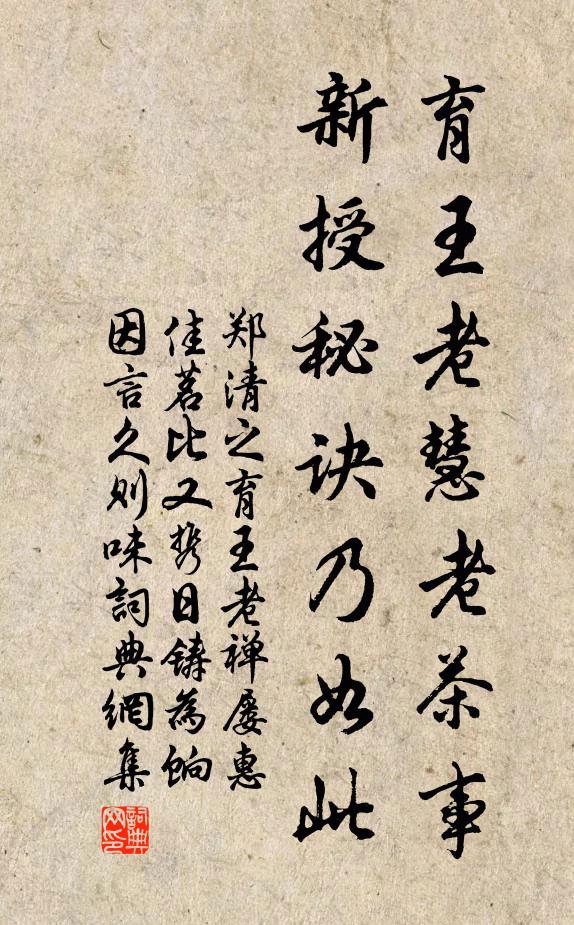 育王老慧老茶事
新授秘诀乃如此
郑清之育王老禅屡惠
佳茗比又携日铸为饷
因言久则味詞典網集
詞典
网印